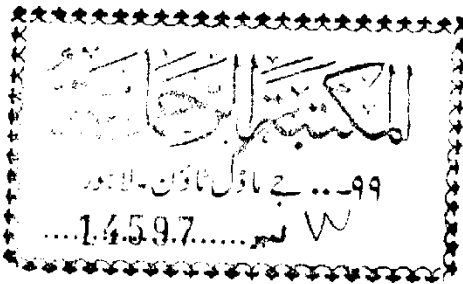 المکتبۃ الرحمانیۃ
۹۹۔۔۔ جے ماڈل ٹاؤن ۔ لاہور
نمبر ....14597....